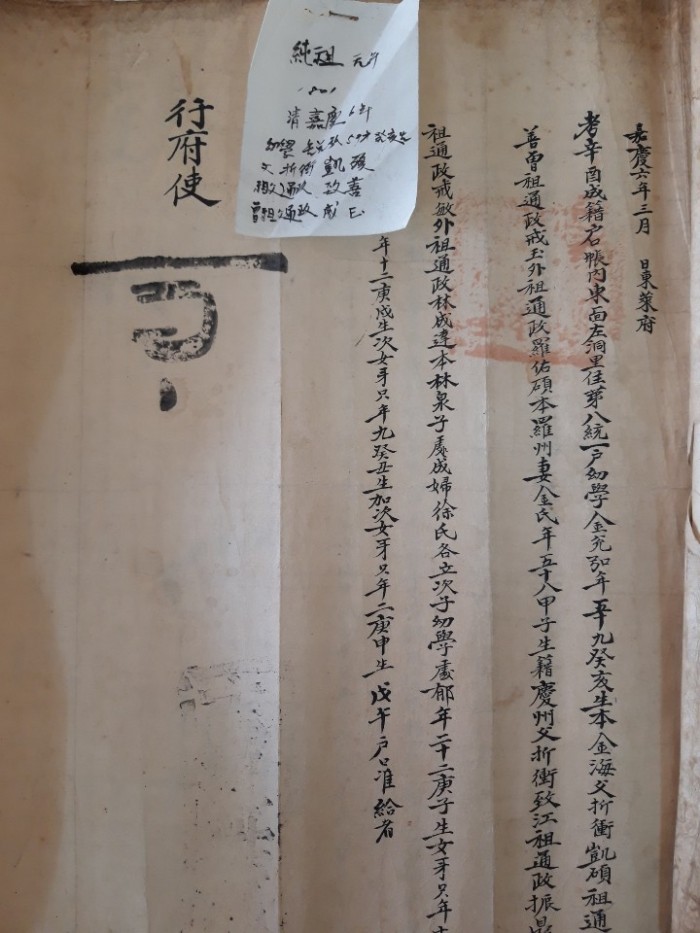 嘉慶六年三月 日東萊府
考辛酉成籍戶帳內東面左洞里住第八統一戶幼學金兌弘年五十九癸亥生本金海父折衝凱碩祖通
善曾祖通政戒玉外祖通政羅佑碩本羅州妻金氏年五十八甲子生籍慶州父折衝致江祖通政振
祖通政戒敏外祖通政林成達本林泉子處成婦徐氏各立次子幼學處郁年二十二庚子生女牙只年十
年十二庚戌生次女牙只年九癸丑生加次女牙只年二庚申生 戊午戶口准給者
行府使
純祖 元年
1801
清嘉慶 6年
幼學 59才 癸亥生
父 折衝 凱
祖父 通政 善
曾祖父 通政 戒 玉